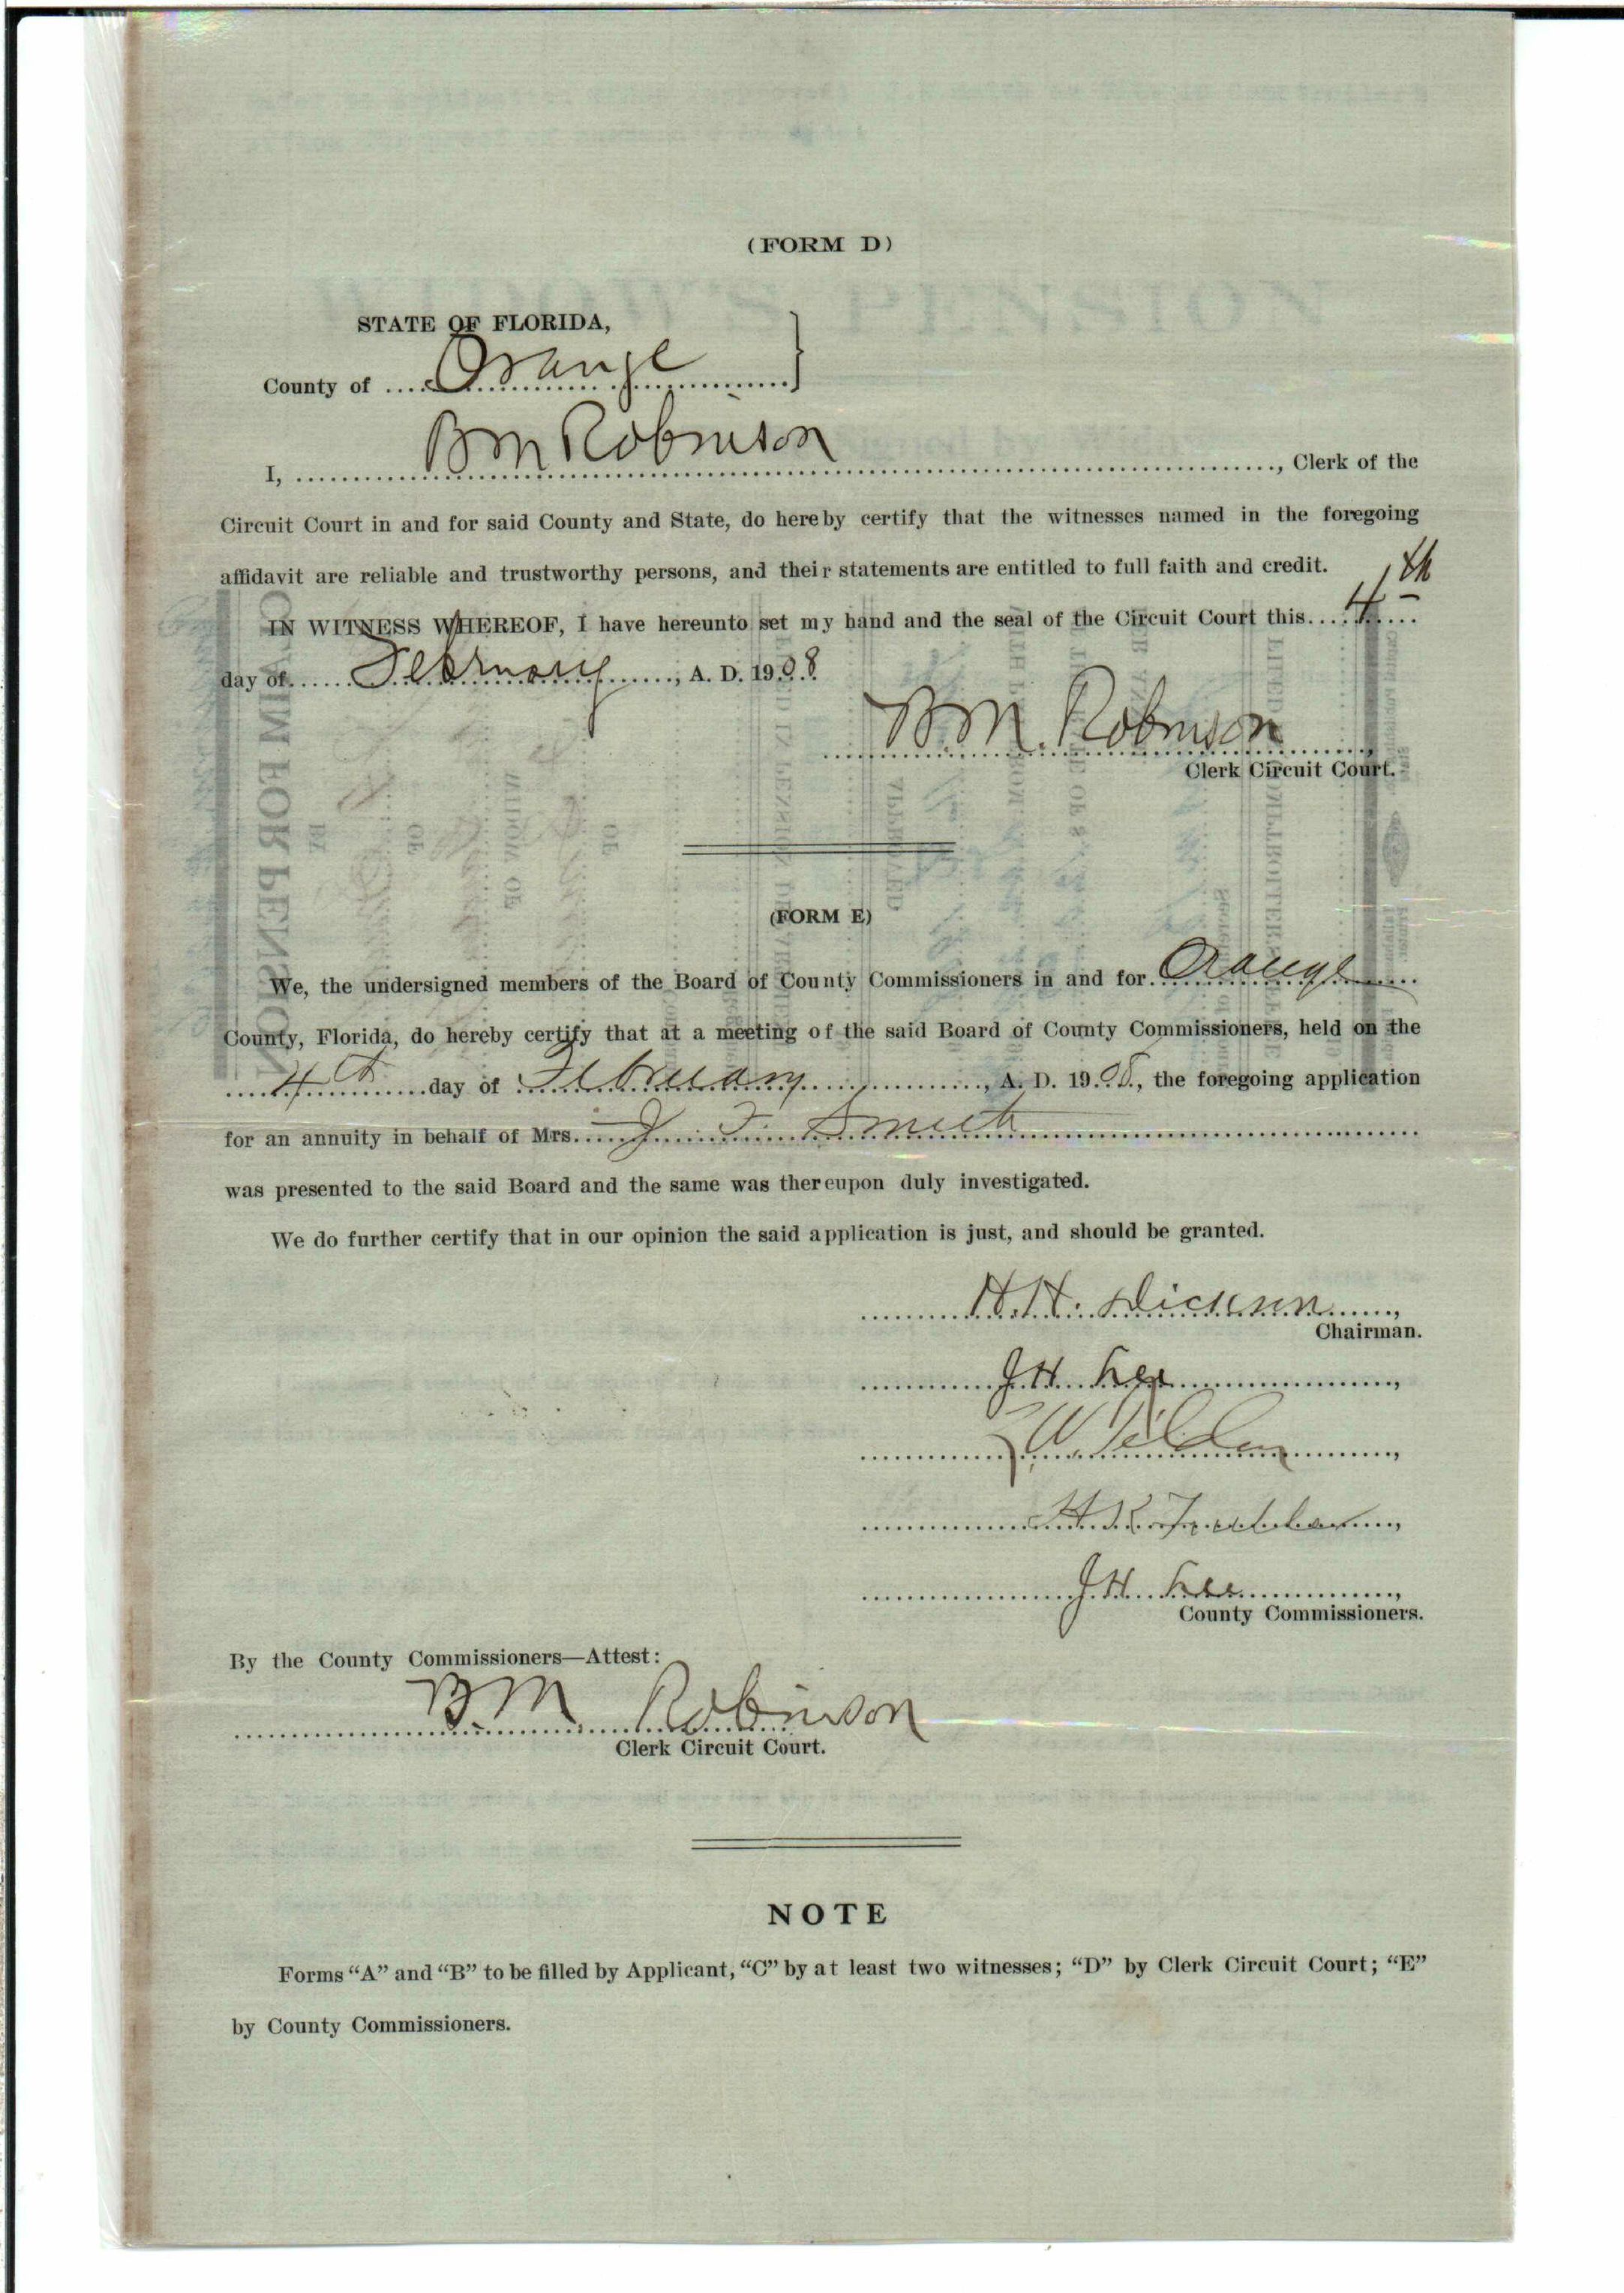 (FORM D)
STATE OF FLORIDA,
County of Orange
I, B M Robinson, Clerk of the
Circuit Court in and for said County and State, do hereby certify that the witnesses named in the foregoing
affidavit are reliable and trustworthy persons, and their statements are entitled to full faith and credit.
IN WITNESS WHEREOF, I have hereunto set my hand and the seal of the Circuit Court this 4th
day of February, A. D. 1908
B. M. Robinson
Clerk Circuit Court.
(FORM E)
We, the undersigned members of the Board of County Commissioners in and for Orange
County, Florida, do hereby certify that at a meeting of the said Board of County Commissioners, held on the
4th day of February, A. D. 1908, the foregoing application
for an annuity in behalf of Mrs. J. F. Smith
was presented to the said Board and the same was thereupon duly investigated.
We do further certify that in our opinion the said application is just, and should be granted.
H. H. Dickson,
Chairman.
J. H. Lee,
W. Tilden,
H. K.
J. H. Lee,
County Commissioners.
By the County Commissioners—Attest:
B. M. Robinson
Clerk Circuit Court.
NOTE
Forms "A" and "B" to be filled by Applicant, "C" by at least two witnesses; "D" by Clerk Circuit Court; "E"
by County Commissioners.